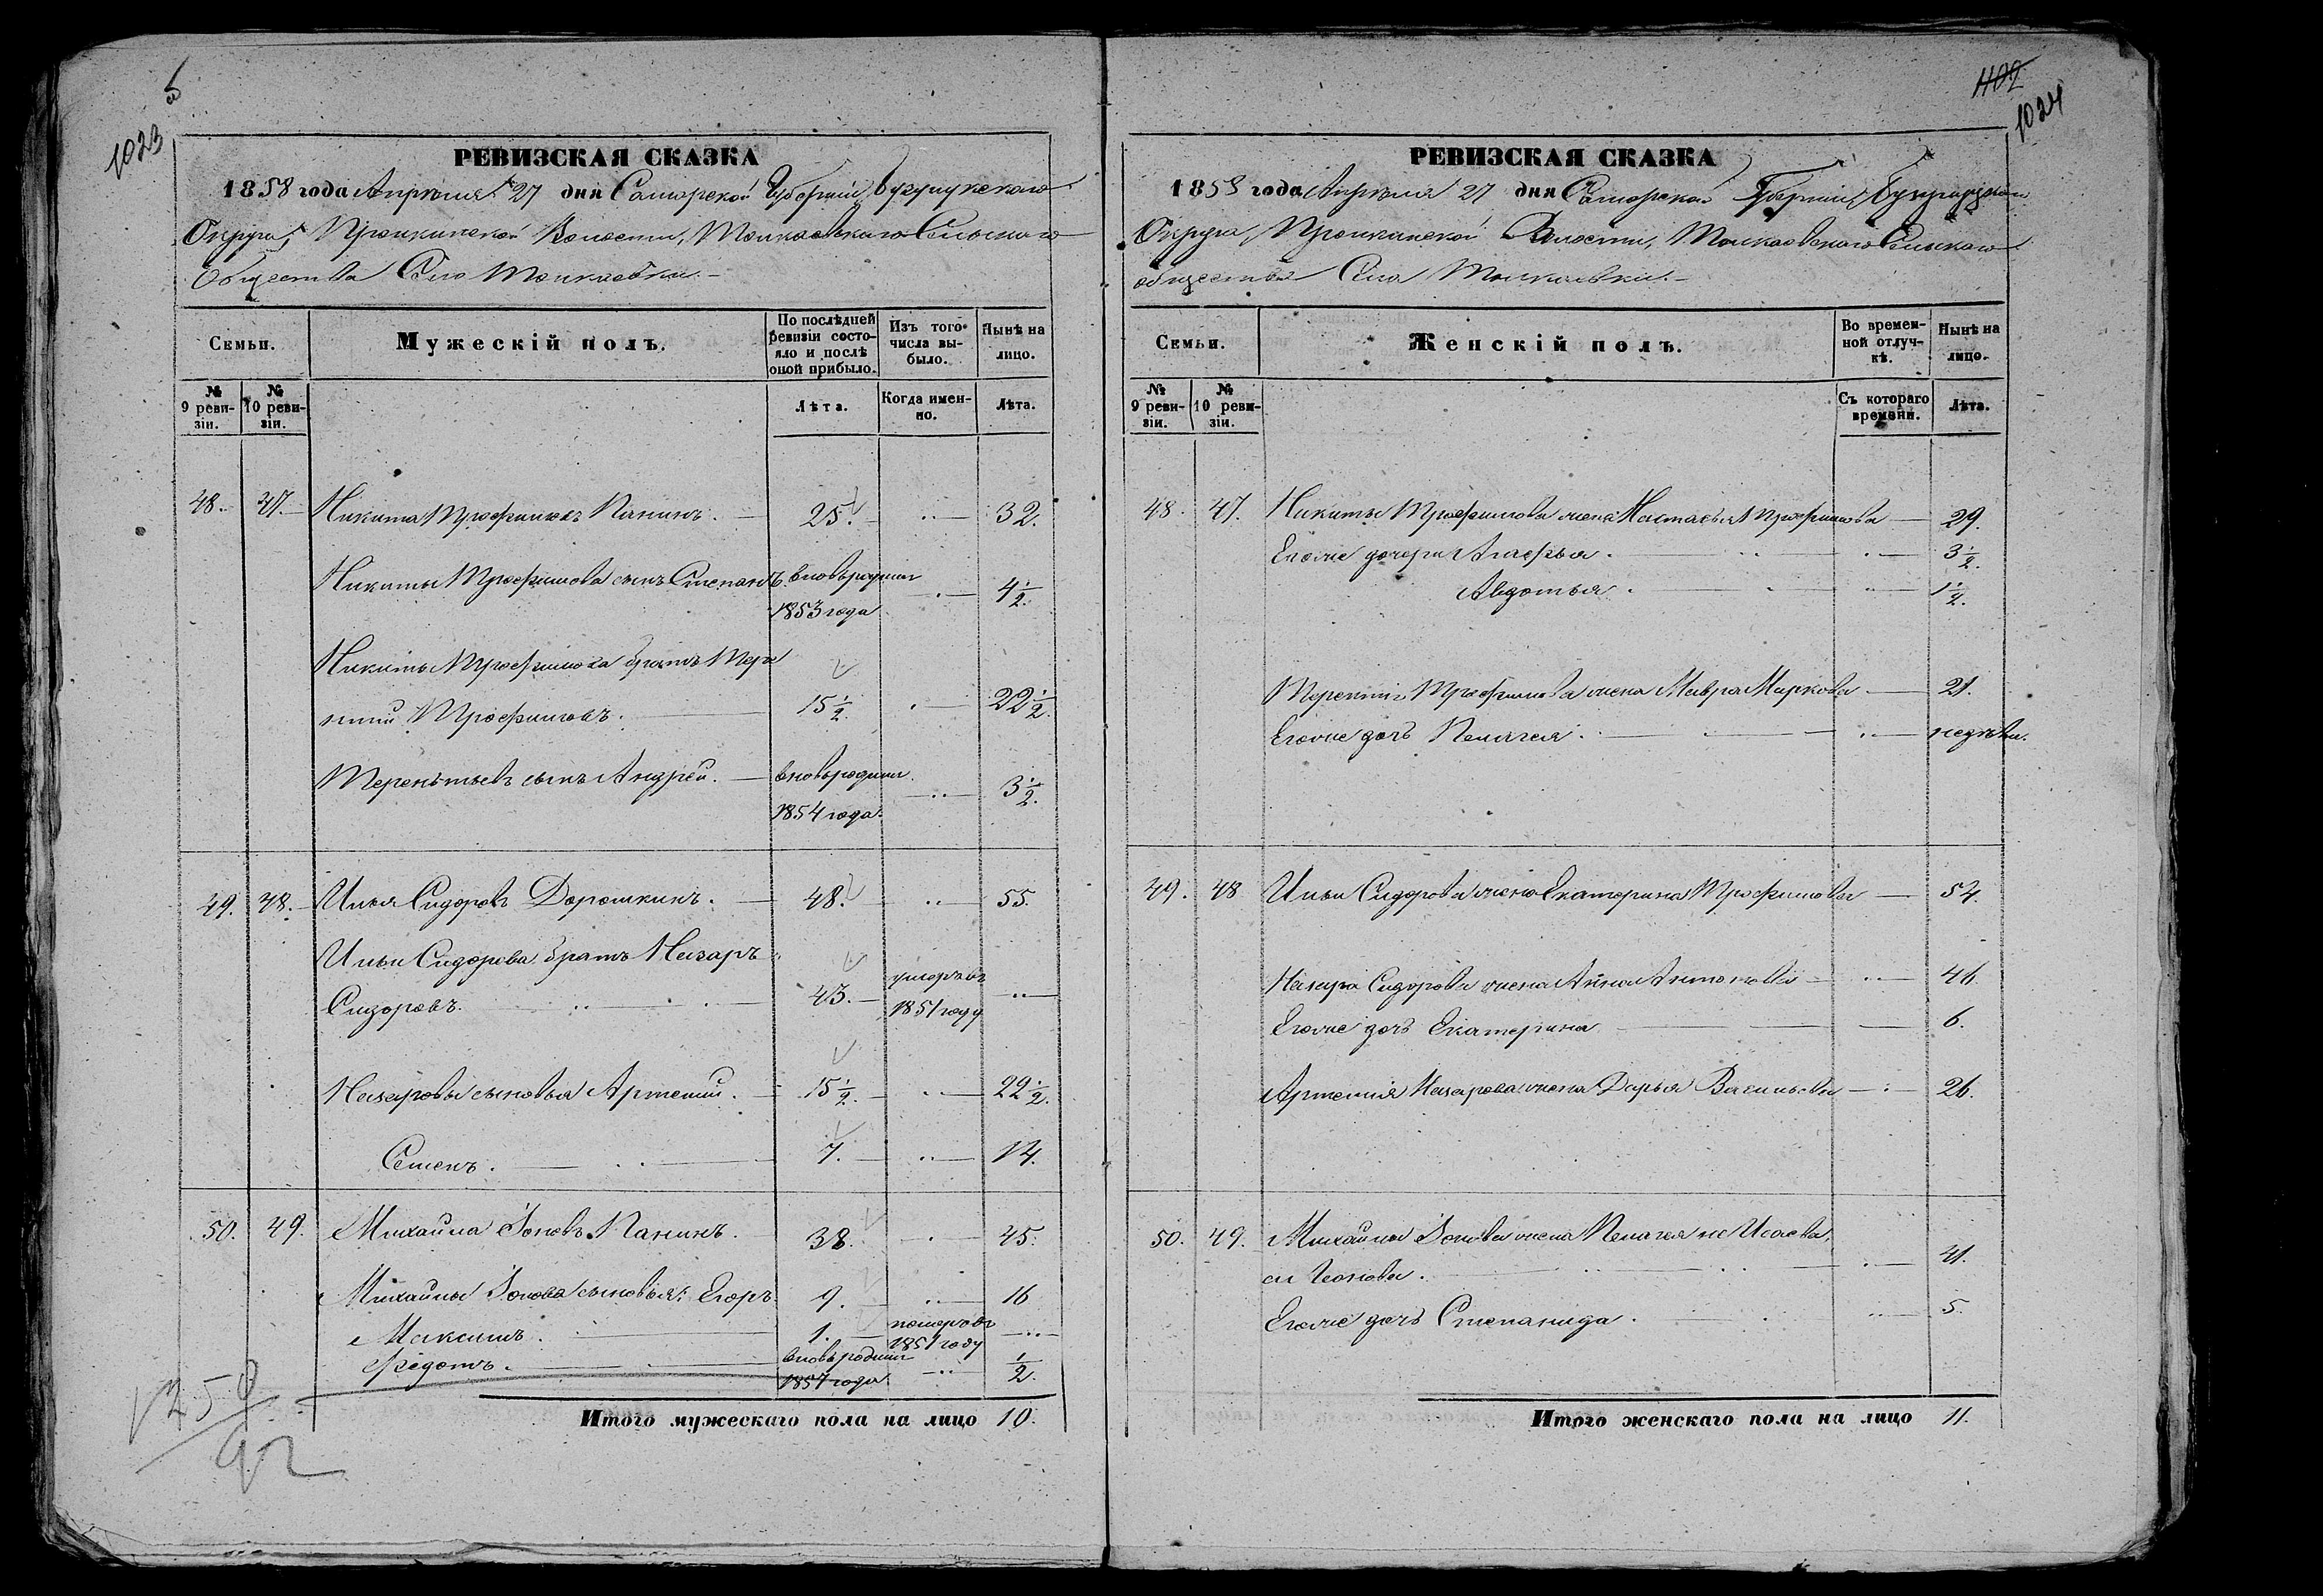 1023
РЕВИЗСКАЯ СКАЗКА
1858 года Апрѣля 27 дня Самарской Губерніи, Бугурусланскаго
Округа, Пронькинской Волости, Толкаевскаго Сельскаго
Общества Села Толкаевки.
Семьи.
Мужескій полъ.
По послѣдней
ревизіи состо-
яло и послѣ
оной прибыло.
Изъ того
числа вы-
было.
Нынѣ на
лицо.
№
9 реви-
зіи.
№
10 реви-
зіи.
Лѣта.
Когда имен-
но.
Лѣта.
48. 47. Никита Трофимовъ Панинъ. 25. 32.
Никиты Трофимова сынъ Степанъ вновьрожден
1853 года 4 1/2.
Никиты Трофимова братъ Тере
нтий Трофимовъ. 15 1/2. 22 1/2.
Терентьевъ сынъ Андрей. вновьрожден.
1854 года. 3 1/2.
49. 48. Илья Сидоровъ Дорошкинъ. 48. 55.
Ильи Сидорова братъ Назаръ
Сидоровъ. 43. умеръ въ
1851 году
Назаровы сыновья Артемий. 15 1/2. 22 1/2.
Семенъ. 7. 14.
50. 49. Михайла Іоновъ Панинъ. 38. 45.
Михайлы Іонова сыновья: Егоръ 9. 16
Максимъ. 1. померъ въ
1851 году
Федотъ. вновьрожден
1857 года. 1/2.
Итого мужескаго пола на лицо 10.
1250
92
1102
1024
РЕВИЗСКАЯ СКАЗКА
1858 года Апрѣля 27 дня Самарской Губерніи, Бугурусланскаго
Округа, Пронькинской Волости, Толкаевскаго Сельскаго
общества Села Толкаевки.
Семьи.
Женскій полъ.
Во времен-
ной отлуч-
кѣ.
Нынѣ на
лицо.
№
9 реви-
зіи.
№
10 реви-
зіи.
Съ котораго
времени.
Лѣта.
48. 47. Никиты Трофимова жена Настасья Трофимова 29.
Егоже дочери Агафья. 3 1/2.
Авдотья. 1 1/2.
Терентія Трофимова жена Мавра Маркова 21.
Егоже дочь Пелагея. недѣли.
49. 48 Ильи Сидорова жена Екатерина Трофимова 54.
Назара Сидорова жена Анна Антонова 46.
Егоже дочь Екатерина 6.
Артемія Назарова жена Дарья Васильева 26.
50. 49. Михайлы Іонова жена Пелагея не Исаева,
41.
Егоже дочь Степанида. 5.
Итого женскаго пола на лицо 11.